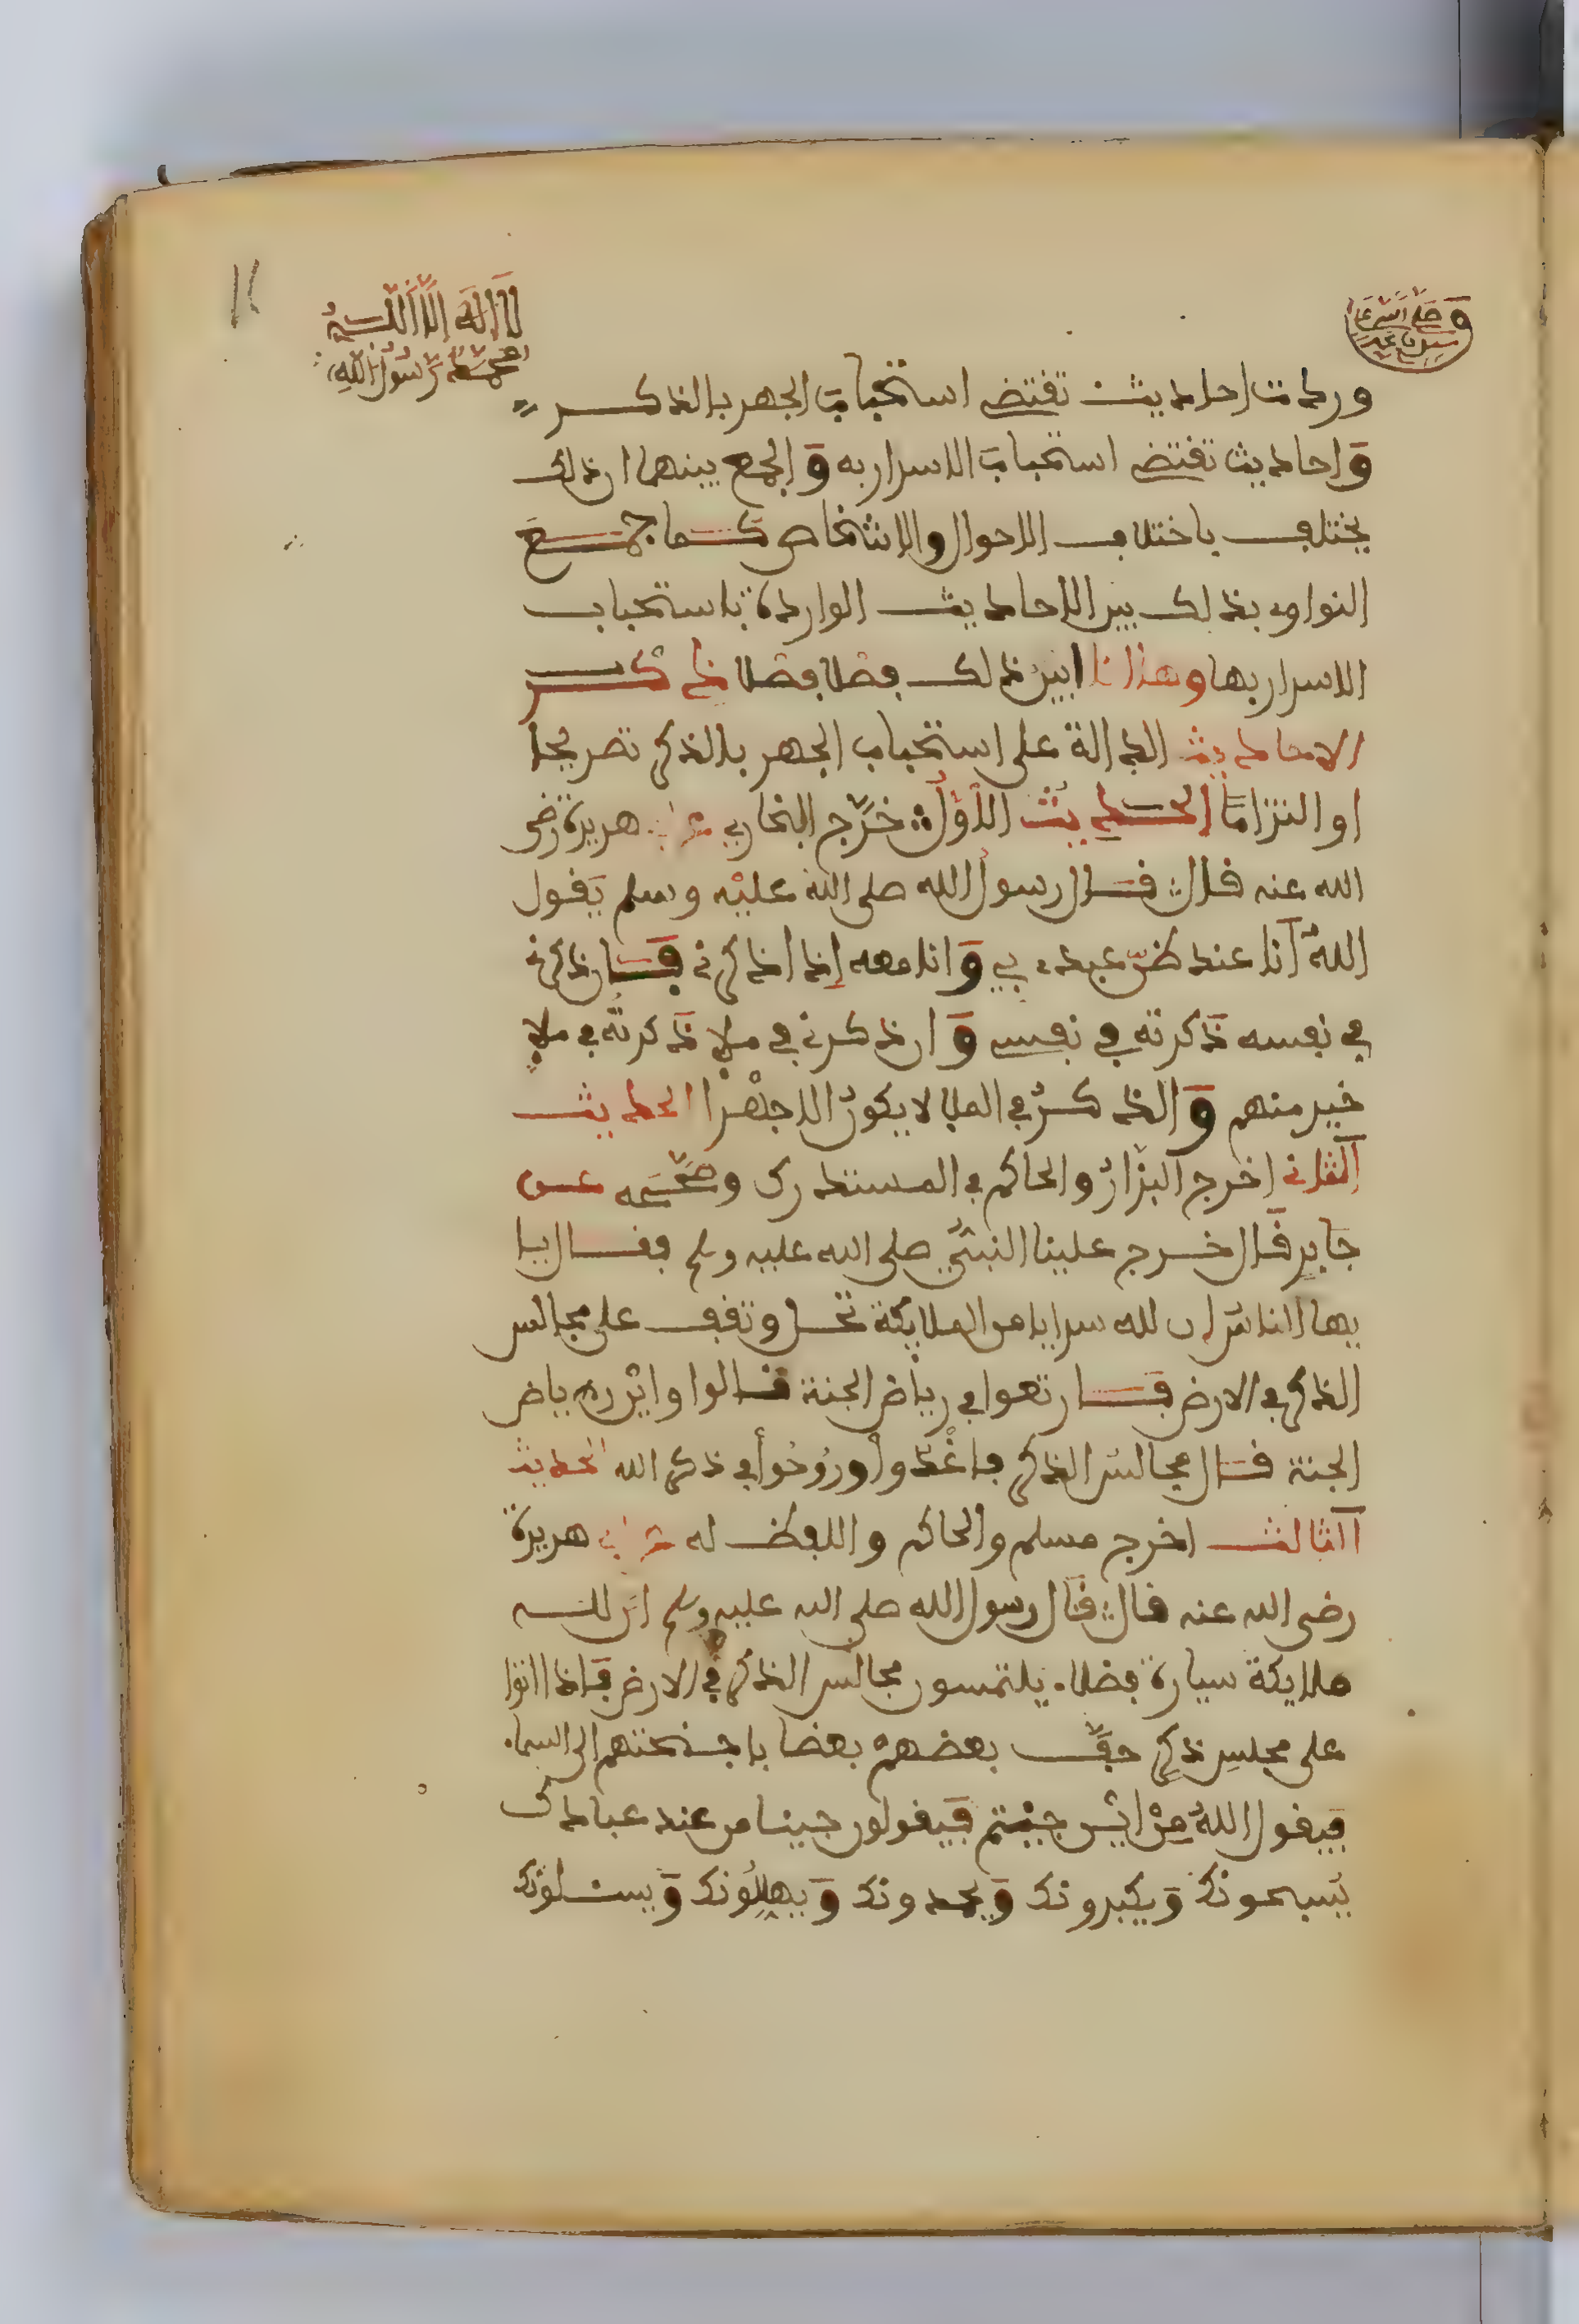 11
لا اله الا الله
محمد رسول الله
وصلى الله على
سيدنا محمد
وردت احاديث تقتضي استحباب الجهر بالذكر
واحاديث تقتضي استحباب الاسرار به والجمع بينهما ان ذلك
يختلف باختلاف الاحوال والاشخاص كما جمع
النواوي بذلك بين الاحاديث الواردة باستحباب
الاسرار بها وهذا انا ابين ذلك فصلا فصلا ذكر
الاحاديث الدالة على استحباب الجهر بالذكر تصريحا
او التزاما الحديث الاول خرّج البخاري عن ابي هريرة رضي
الله عنه قال قال رسول الله صلى الله عليه وسلم يقول
الله انا عند ظن عبدي بي وانا معه اذا ذكرني فان ذكرني
في نفسه ذكرته في نفسي وان ذكرني في ملإ ذكرته في ملإ
خير منهم والذكر في الملا لا يكون الا جهرا الحديث
الثاني اخرج البزار والحاكم في المستدرك وصححه عن
جابر قال خرج علينا النبي صلى الله عليه وسلم فقال يا
يها الناس ان لله سرايا من الملايكة تحل وتقف على مجالس
الذكر في الارض فارتعوا في رياض الجنة قالوا واين رياض
الجنة قال مجالس الذكر فاغدوا وروحوا في ذكر الله الحديث
الثالث اخرج مسلم والحاكم واللفظ له عن ابي هريرة
رضي الله عنه قال قال رسول الله صلى الله عليه وسلم ان لله
ملايكة سيارة فضلا يلتمسون مجالس الذكر في الارض فاذا اتوا
على مجلس ذكر حف بعضهم بعضا باجنحتهم الى السماء
فيقول الله من اين جيتم فيقولون جينا من عند عبادك
يسبحونك ويكبرونك ويحمدونك ويهللونك ويسئلونك